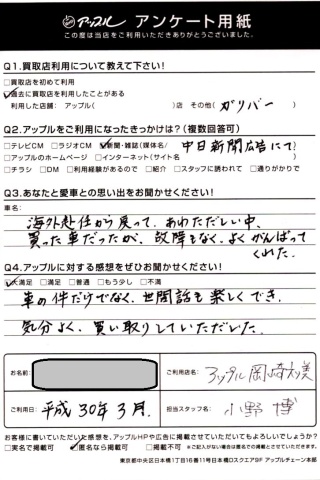 アップル アンケート用紙
この度は当店をご利用いただきありがとうございました。
Q1.買取店利用について教えて下さい!
□買取店を初めて利用
☑過去に買取店を利用したことがある
利用した店舗: アップル( )店 その他( ガリバー )
Q2.アップルをご利用になったきっかけは?(複数回答可)
□テレビCM □ラジオCM ☑新聞・雑誌(媒体名/ 中日新聞広告にて )
□アップルのホームページ □インターネット(サイト名 )
□チラシ □DM □利用経験があるので □紹介 □スタッフに誘われて □通りがかりで
Q3.あなたと愛車との思い出をお聞かせください!
車名:
海外赴任から戻って、あわただしい中、
買った車だったが、故障もなく、よくがんばって
くれた。
Q4.アップルに対する感想をぜひお聞かせください!
☑大満足 □満足 □普通 □もう少し □不満
車の件だけでなく、世間話も楽しくでき、
気分よく、買い取りしていただいた。
お名前:
ご利用店名: アップル岡崎大美
ご利用日: 平成30年3月.
担当スタッフ名: 小野 博
お客様に書いていただいた感想を、アップルHPや広告に掲載させていただいてもよろしいでしょうか?
□実名で掲載可 ☑匿名なら掲載可 □掲載不可
東京都中央区日本橋1丁目16番11号日本橋Dスクエア9F アップルチェーン本部